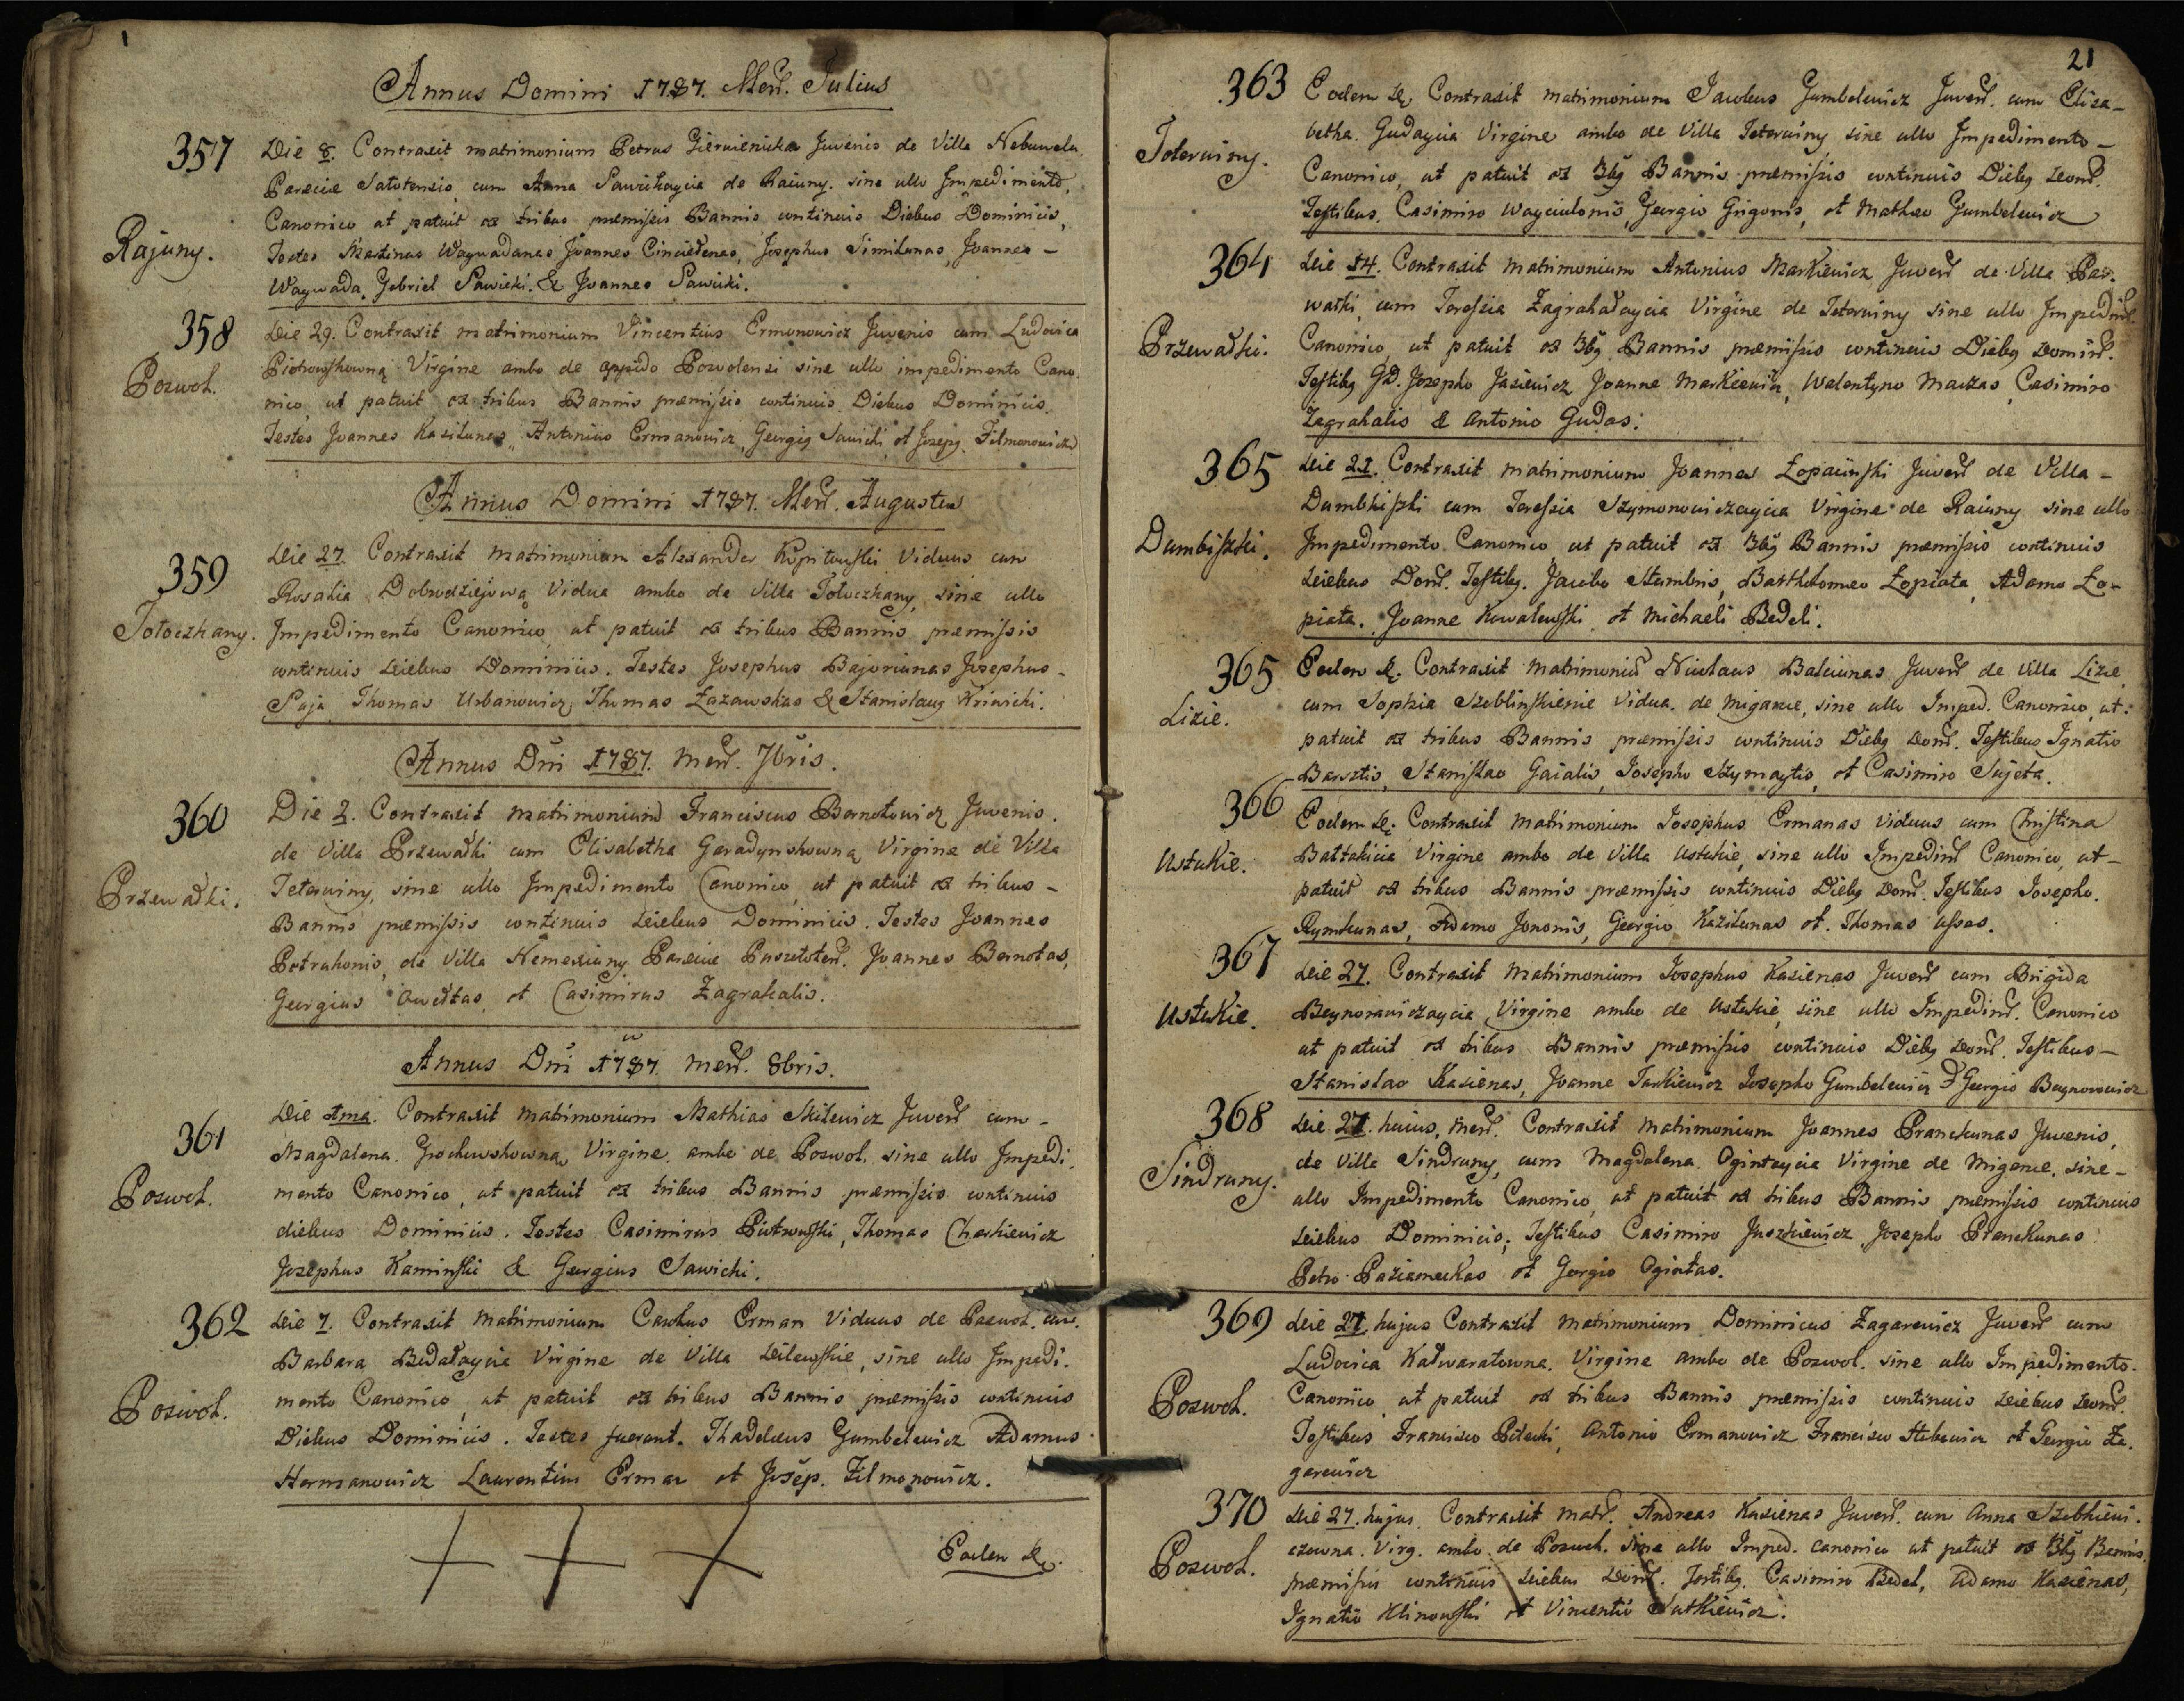 Annus Domini 1787. Men̄. Julius
357
Die 8. Contraxit matrimonium Petrus Giervienicka Juvenis de Villa Nebuwela
Paraeciae Satotensis, cum Anna Sawickaycia de Raiuny. sine ullo Impedimento,
Canonico at patuit ex tribus praemissis Bannis continuis Diebus Dominicis,
Rajuny.
Testes Martinus Waywadanas Joannes Cincieđenas, Josephus Simikunas, Joannes –
Waywada, Gabriel Sawicki. & Joannes Sawicki.
358
Die 29. Contraxit matrimonium Vincentius Ermonowicz Juvenis cum Ludovica
Piotrowskowną Virgine ambo de oppido Poswolensi sine ullo impedimento Cano
Poswol.
nico, ut patuit ex tribus Bannis praemissis continuis Diebus Dominicis.
Testes Joannes Kasilunas, Antonius Ermanowicz, Georgig Sawicki, et Josepg. Filmonowicz
Annus Domini 1787. Men̄. Augustus
359
Die 27. Contraxit matrimonium Alexander Kopitowski Viduus cum
Rosalia Dobrodziejową Vidua ambo de Villa Totoczkany, sine ullo
Totoczkany.
Impedimento Canonico, ut patuit ex tribus Bannis praemissis
continuis Diebus Dominicis. Testes Josephus Bajoriunas Josephus –
Saja, Thomas Urbanowicz, Thomas Zazawskas & Stanislaus Kriwicki.
Annus Dn̄i 1787. men̄. 7bris.
360
Die 2. Contraxit matrimonium Franciscus Bernotowicz Juvenis.
de Villa Przewałki cum Elisabetha Garadynskowną Virgine de Villa
Przewałki.
Tetewiny, sine ullo Impedimento Canonico, ut patuit ex tribus –
Bannis praemissis continuis Diebus Dominicis. Testes Joannes
Petrakonis, de Villa Nemeikiuny Paraeciae Puszototen̄. Joannes Bernotas,
Georgius Aweđtas, et Casimirus Zagrakalis.
Annus Dn̄i 1787. men̄. 8bris.
361
Die 1ma. Contraxit matrimonium Mathias Mitewicz Juven̄ cum –
Magdalena Grochowskowną Virgine. ambo de Poswol. sine ullo Impedi
Poswol.
mento Canonico, ut patuit ex tribus Bannis praemissis continuis
diebus Dominicis. Testes Casimirus Piotrowski, Thomas Charkiewicz
Josephus Kaminski & Georgius Sawicki.
362
Die 7. Contraxit matrimonium Carolus Erman Viduus de Poswol. cum.
Barbara Bedałaycia Virgine de Villa Dilewskie, sine ullo Impedi.
Poswol.
mento Canonico, ut patuit ex tribus Bannis praemissis continuis
Diebus Dominicis. Testes fuerunt. Thaddaeus Gumbelewicz Adamus
Hermanowicz Laurentius Erman et Josep. Filmonowicz.
Eadem D.
21
363
Eadem D. Contraxit matrimonium Jacobus Gumbelewicz Juven̄. cum Elisa–
betha Gudaycia Virgine ambo de Villa Teterwiny sine ullo Impedimento –
Teterwiny.
Canonico, ut patuit ex 3bg Bannis praemissis continuis Diebg Dom̄.
Testibus. Casimiro Wayciulonis, Georgio Grigonis, et Mathaeo Gumbelewicz
364
Die 14. Contraxit matrimonium Antonius Markiewicz Juven̄ de Villa Prze
wałki, cum Teressia Zagrakałaycia Virgine de Teterwiny sine ullo Impedim̄.
Przewałki.
Canonico, ut patuit ex 3bg Bannis praemissis continuis Diebg Domin̄.
Testibg Gd. Josepho Jasiewicz Joanne Markiewicz, Walentyno Maczas, Casimiro
Zagrakalis & Antonio Gudas.
365
Die 21. Contraxit matrimonium Joannes Łopaciński Juven̄ de Villa –
Dumbliszki cum Teressia Szymonowiczaycia Virgine de Raiuny sine ullo
Dumbiszki.
Impedimento Canonico ut patuit ex 3bg Bannis praemissis continuis
Diebus Dom̄. Testibg. Jacobo Stumbris, Bartholomeo Łopiata, Adamo Ło–
piata. Joanne Kowalewski et Michaeli Bedeli.
365
Eadem D. Contraxit matrimoniū Nicolaus Balciunas Juven̄ de Villa Lizie
cum Sophia Szeblinskienie Vidua. de Migance, sine ullo Imped. Canonico, ut.
Lizie.
patuit ex tribus Bannis praemissis continuis Diebg Dom̄. Testibus Ignatio
Barsztis, Stanislao Gaialis, Josepho Szymaytis, et Casimiro Sujeta.
366
Eadem D. Contraxit matrimonium Josephus Ermanas viduus cum Christina
Ustukie.
Battakicia Virgine ambo de Villa Ustukie, sine ullo Impedim̄ Canonico, ut –
patuit ex tribus Bannis praemissis continuis Diebg Dom̄. Testibus Josepho.
Rymkunas, Adamo Jononis, Georgio Kazikunas et Thomas Ussas.
367
Die 27. Contraxit matrimonium Josephus Kasienas Juven̄ cum Brigida
Ustukie.
Beynorawiczaycia Virgine ambo de Ustukie, sine ullo Impedim̄. Canonico
ut patuit ex tribus Bannis praemissis continuis Diebg Dom̄. Testibus –
Stanislao Kasienas, Joanne Jankiewicz Josepho Gumbelewicz et Georgio Beynorowicz
368
Die 27. huius. men̄. Contraxit matrimonium Joannes Pranckunas Juvenis,
Sindruny.
de Villa Sindruny, cum Magdalena Ogintaycia Virgine de Migance. sine –
ullo Impedimento Canonico, ut patuit ex tribus Bannis praemissis continuis
Diebus Dominicis; Testibus Casimiro Juszkiewicz, Josepho Pranckunas
Petro Paziameckas et Georgio Ogintas.
369
Die 27. hujus Contraxit matrimonium Dominicus Zagarewicz Juven̄ cum
Ludovica Kałwaratowna. Virgine ambo de Poswol. sine ullo Impedimento.
Poswol.
Canonico, ut patuit ex tribus Bannis praemissis continuis Diebus Dom̄.
Testibus Francisco Pitecki, Antonio Ermanowicz Francisco Stebowicz et Georgio Za.
garewicz
370
Die 27. hujus. Contraxit matr̄. Andreas Kasienas Juven̄. cum Anna Szebkiewi.
Poswol.
czowna. Virg. ambo de Poswol. sine ullo Imped. canonico ut patuit ex 3bg Bannis
praemissis continuis Diebus Dom̄. Testibg. Casimiro Bedel, Adamo Kasienas,
Ignatio Klinowski et Vincentio Nutkiewicz.